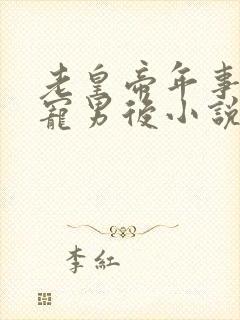 老皇帝年事
寵男後小說
李紅